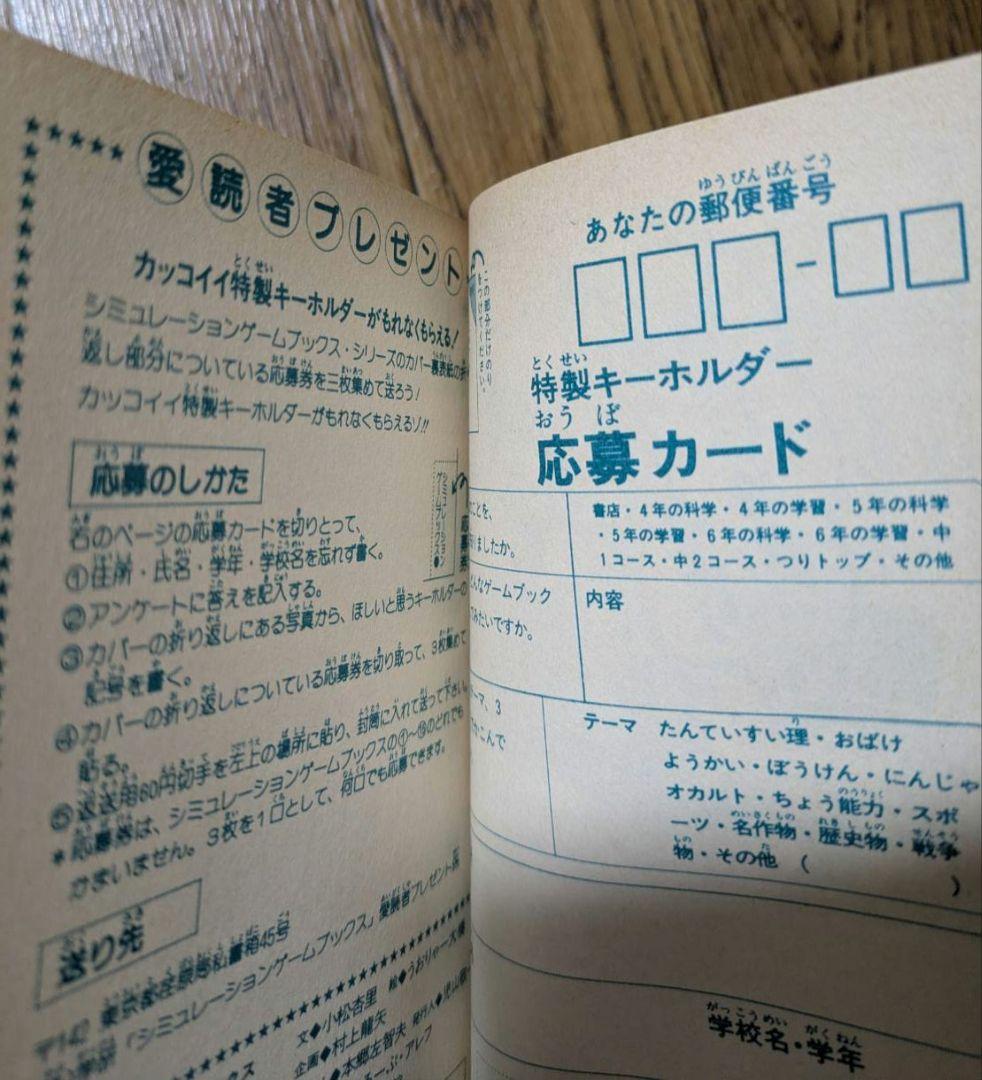 愛読者プレゼント
カッコイイ特製キーホルダーがもれなくもらえる!
シミュレーションゲームブックス・シリーズのカバー裏表紙の折り
返し部分についている応募券を三枚集めて送ろう!
カッコイイ特製キーホルダーがもれなくもらえるゾ!!
応募のしかた
右のページの応募カードを切りとって、
①住所・氏名・学年・学校名を忘れず書く。
②アンケートに答えを記入する。
③カバーの折り返しにある写真から、ほしいと思うキーホルダーの
記号を書く。
④カバーの折り返しについている応募券を切り取って、3枚集めて
貼る。
⑤返送用60円切手を左上の場所に貼り、封筒に入れて送って下さい。
*応募券は、シミュレーションゲームブックスの①〜⑯のどれでも
かまいません。3枚を1口として、何口でも応募できます。
送り先
〒142 東京都荏原局私書箱45号
「シミュレーションゲームブックス」愛読者プレゼント
文◆小松杏里 絵◆うおりゃー大橋
企画◆村上龍矢 発行人◆
◆本郷左智夫
るーぷ・アレフ
この部分だけのり
をつけてください。
あなたの郵便番号
特製キーホルダー
応募カード
ことを、
りましたか。
書店・4年の科学・4年の学習・5年の科学
・5年の学習・6年の科学・6年の学習・中
1コース・中2コース・つりトップ・その他
どんなゲームブック
てみたいですか。
内容
テーマ、3
かこんで
テーマ たんていすい理・おばけ
ようかい・ぼうけん・にんじゃ
オカルト・ちょう能力・スポ
ーツ・名作物・歴史物・戦争
物・その他( )
学校名・学年